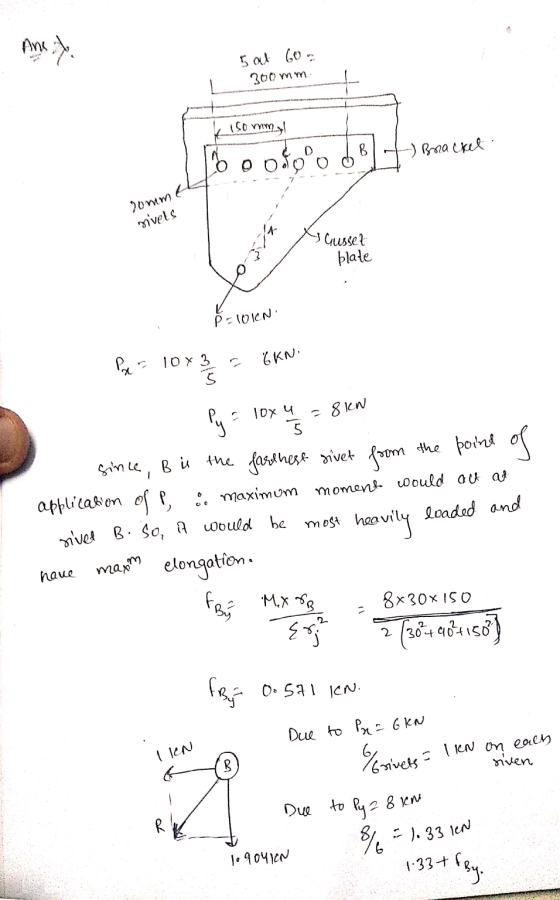 Ans
5 at 60 =
300 mm.
150 mm
A
C
D
B
Bracket.
20mm
rivets
4
3
Gusset
plate
P = 10KN.
Px = 10 × 3/5 = 6KN.
Py = 10 × 4/5 = 8 KN
since, B is the farthest rivet from the point of
application of P, ∴ maximum moment would act at
rivet B. So, it would be most heavily loaded and
have maxm elongation.
fBy = M × rB / Σ rj² = 8×30×150 / 2 (30²+90²+150²)
fBy = 0.571 KN.
Due to Px = 6KN
6/6rivets = 1 KN on each
riven
1 KN
B
R
1.904KN
Due to Py = 8 KN
8/6 = 1.33 KN
1.33 + fBy.